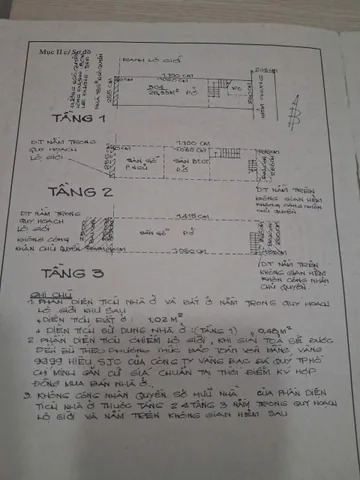 Mục II c/ Sơ đồ
RANH LỘ GIỚI
1.100 CM
BĐ4
28,35M²
P.Ở
WC
TẦNG 1
DT NẰM TRONG
QUY HOẠCH
LỘ GIỚI
1.100 CM
SÀN GỖ
P.NGỦ
SÀN BTCT
P.Ở
TẦNG 2
DT NẰM TRÊN
KHÔNG GIAN HẺM
KHÔNG CÔNG NHẬN
CHỦ QUYỀN
DT NẰM TRONG
QUY HOẠCH
LỘ GIỚI
KHÔNG CÔNG
NHẬN CHỦ QUYỀN
1.415 CM
SÀN GỖ
P.Ở
1.050 CM
TẦNG 3
DT NẰM TRÊN
KHÔNG GIAN HẺM
KHÔNG CÔNG NHẬN
CHỦ QUYỀN
GHI CHÚ
1. PHẦN DIỆN TÍCH NHÀ Ở VÀ ĐẤT Ở NẰM TRONG QUY HOẠCH
LỘ GIỚI NHƯ SAU
+ DIỆN TÍCH ĐẤT : 1,02 M²
+ DIỆN TÍCH SỬ DỤNG NHÀ Ở (TẦNG 1) : 0,48 M²
2. PHẦN DIỆN TÍCH CHIẾM LỘ GIỚI, KHI GIẢI TỎA SẼ ĐƯỢC
ĐỀN BÙ THEO PHƯƠNG THỨC BẢO TOÀN VỐN BẰNG VÀNG
9999 HIỆU SJC CỦA CÔNG TY VÀNG BẠC ĐÁ QUÝ TP HỒ
CHÍ MINH CĂN CỨ GIÁ CHUẨN TẠI THỜI ĐIỂM KÝ HỢP
ĐỒNG MUA BÁN NHÀ Ở.
3. KHÔNG CÔNG NHẬN QUYỀN SỞ HỮU NHÀ CỦA PHẦN DIỆN
TÍCH NHÀ Ở THUỘC TẦNG 2 & TẦNG 3 NẰM TRONG QUY HOẠCH
LỘ GIỚI VÀ NẰM TRÊN KHÔNG GIAN HẺM SAU